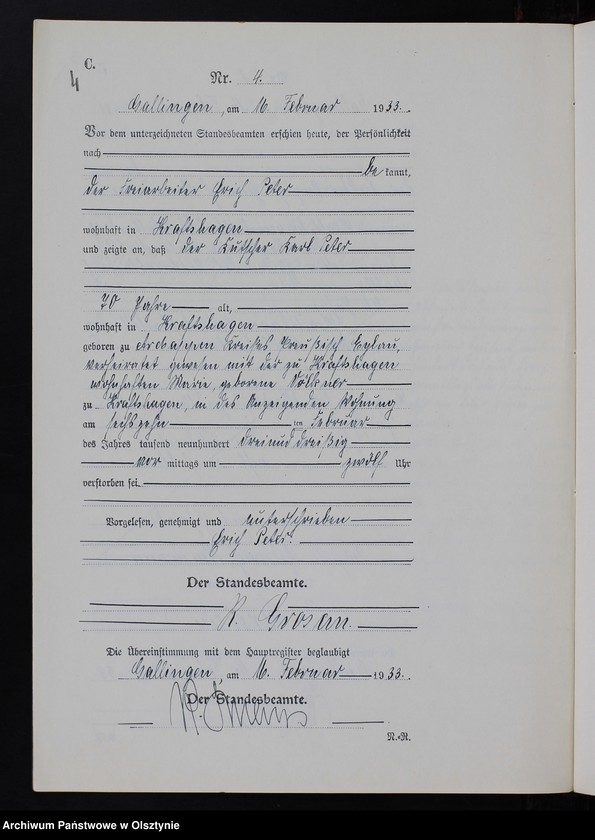 C.
4
Nr. 4.
Gallingen, am 16. Februar 1933.
Vor dem unterzeichneten Standesbeamten erschien heute, der Persönlichkeit
nach
be kannt,
der Freiarbeiter Erich Peter
wohnhaft in Kraftshagen
und zeigte an, daß der Kutscher Karl Peter
70 Jahre alt,
wohnhaft in Kraftshagen
geboren zu Kreises Preußisch Eylau,
verheiratet gewesen mit der zu Kraftshagen
wohnhaften Marie, geborene
zu Kraftshagen, in des Anzeigenden Wohnung
am sechszehn ten Februar
des Jahres tausend neunhundert dreiunddreißig
vor mittags um zwölf Uhr
verstorben sei.
Vorgelesen, genehmigt und unterschrieben
Erich Peter.
Der Standesbeamte.
R. Grosam.
Die Übereinstimmung mit dem Hauptregister beglaubigt
Gallingen, am 16. Februar 1933.
Der Standesbeamte.
N.-R.
Archiwum Państwowe w Olsztynie